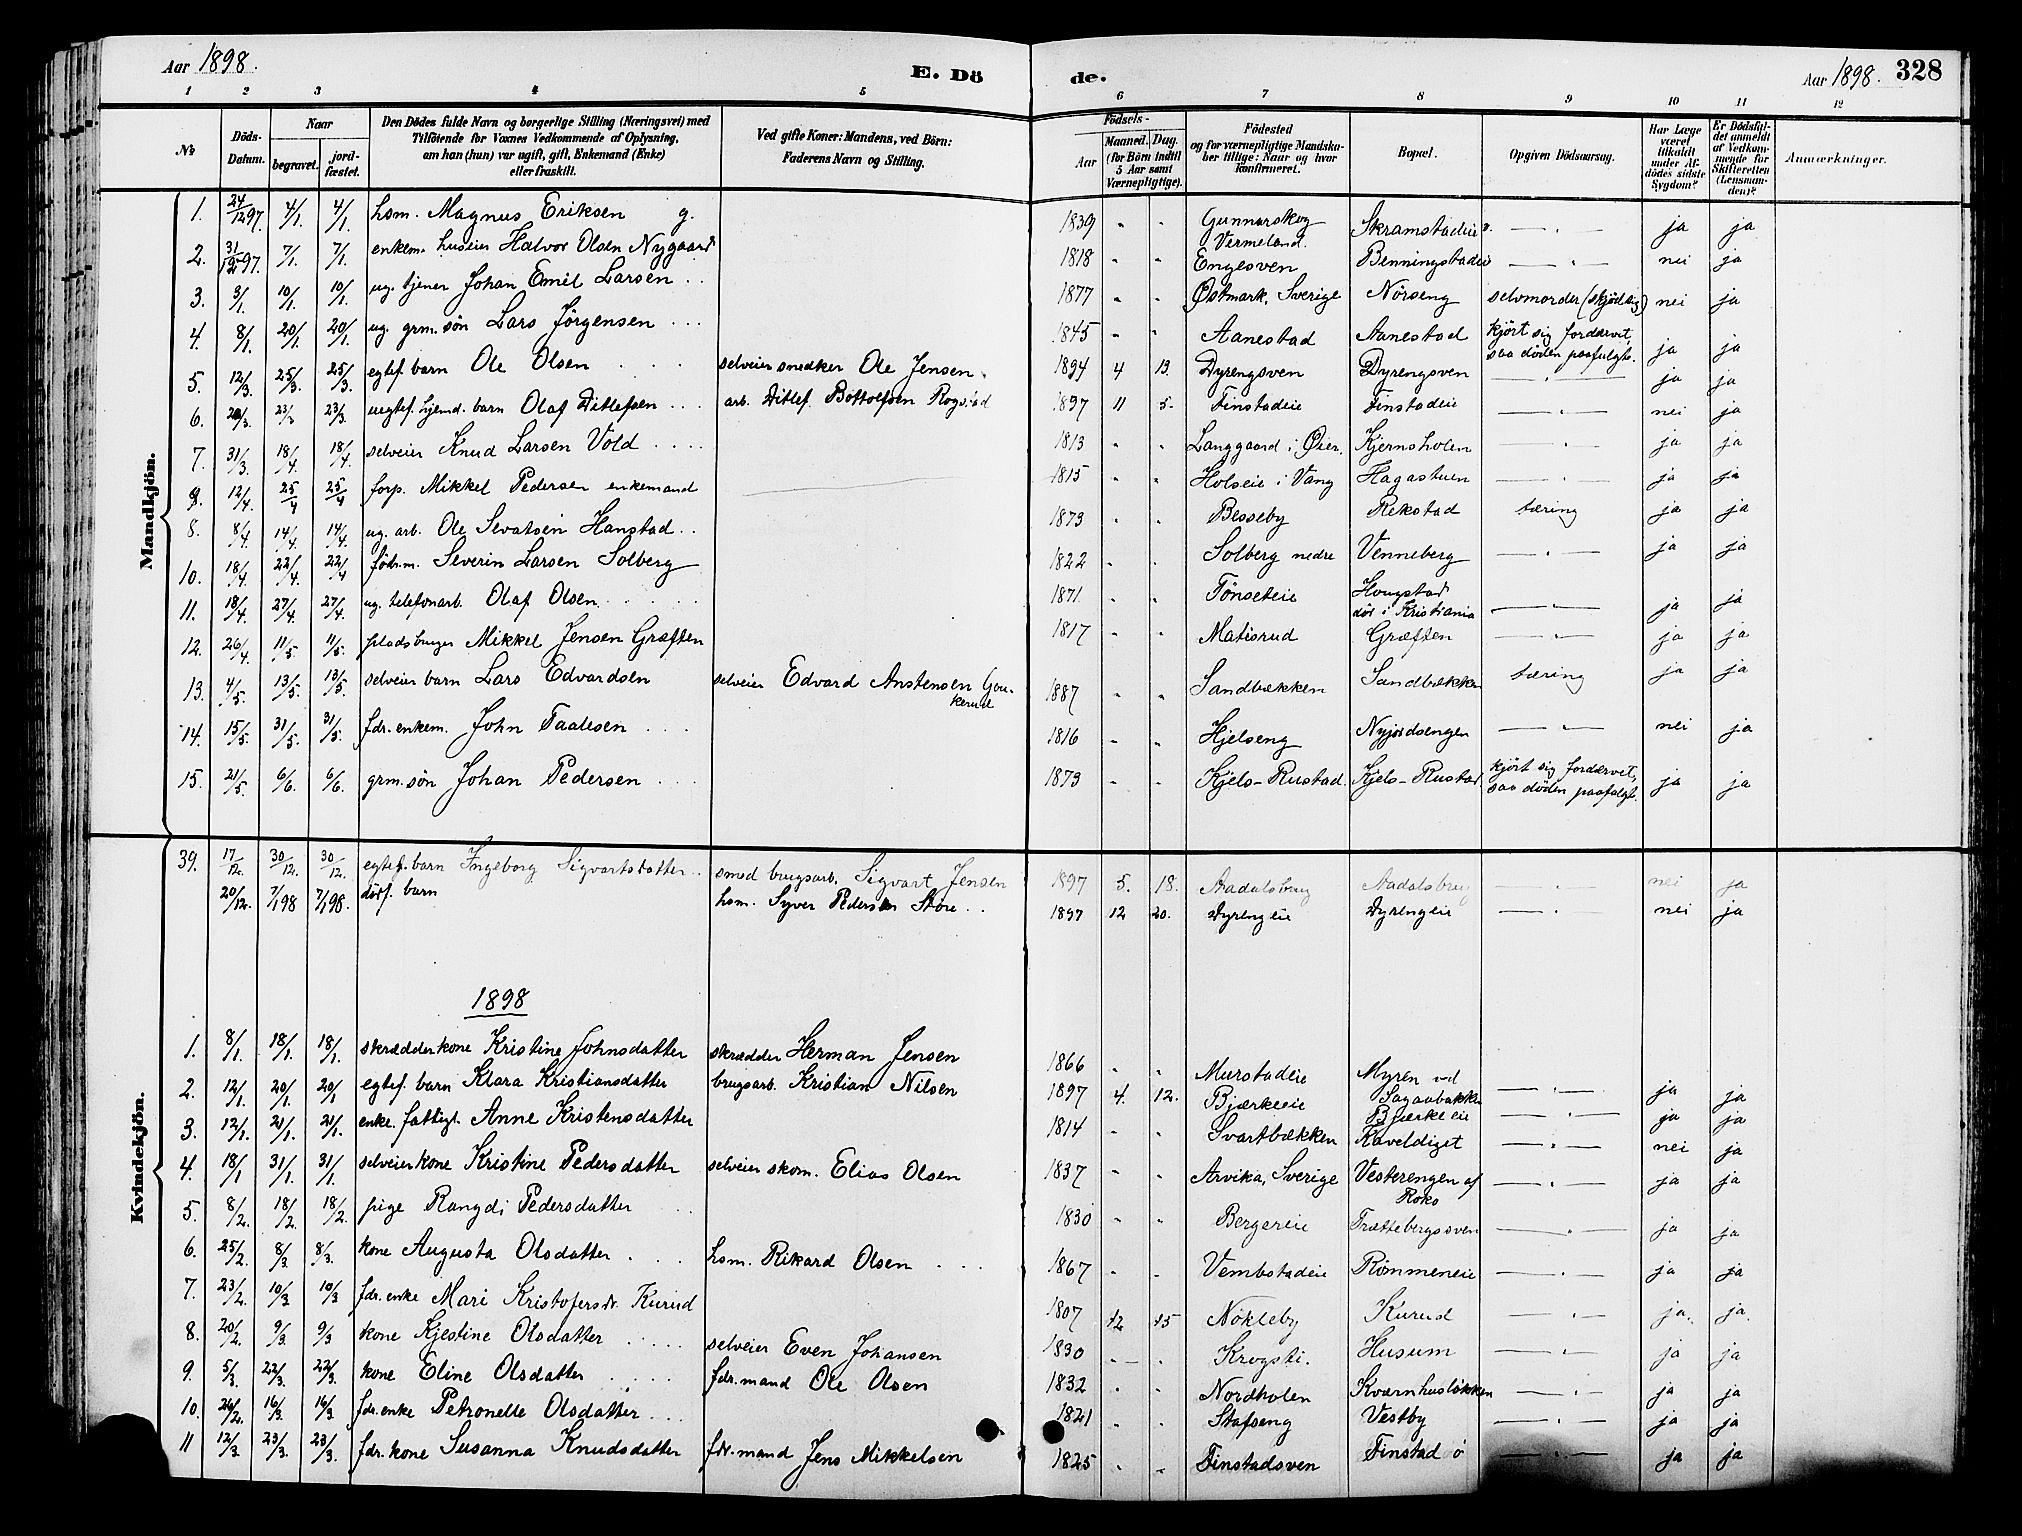 Aar 1898. E. Dö de. Aar 1898. 328
1 2 3 4 5 6 7 8 9 10 11 12
№ Döds-Datum. Naar begravet. jordfæstet. Den Dödes fulde Navn og borgerlige Stilling (Næringsvei) med Tilföiende for Voxnes Vedkommende af Oplysning, om han (hun) var ugift, gift, Enkemand (Enke) eller fraskilt. Ved gifte Koner: Mandens, ved Börn: Faderens Navn og Stilling. Födsels- Aar Maaned. Dag. (for Börn indtil 5 Aar samt Værnepligtige). Födested og for værnepligtige Mandskaber tillige: Naar og hvor konfirmeret. Bopæl. Opgiven Dödsaarsag. Har Læge været tilkaldt under Afdödes sidste Sygdom? Er Dödsfaldet anmeldt af Vedkommende for Skifteretten (Lensmanden)? Anmærkninger.
Mandkjön.
1. 24/12 97. 4/1. 4/1. hsm. Magnus Eriksen g. 1839 " " Gunnarskog Vermeland. Skramstadeie — " — ja ja
2. 31/12 97. 7/1. 7/1. enkem. huseier Halvor Olsen Nygaard 1818 " " Engesven Benningstadeie — " — nei ja
3. 3/1. 10/1. 10/1. ug. tjener Johan Emil Larsen . . 1877 " " Østmark, Sverige Nörseng selvmorder (skjöd sig) nei ja
4. 8/1. 20/1. 20/1. ug. grm. sön Lars Jörgensen . . . 1845 " " Aanestad Aanestad kjört sig fordærvet, saa döden paafulgte. ja ja
5. 12/3. 25/3. 25/3. egtef. barn Ole Olsen . . . selveier snedker Ole Jensen. 1894 4 13. Dyrengsven Dyrengsven — " — ja ja
6. 20/3. 23/3 23/3. uegtef. hjemd. barn Olaf Ditlefsen . . . arb. Ditlef Bottolfsen Rogstad 1897 11 5. Finstadeie Finstadeie — " — nei ja
7. 31/3. 18/4. 18/4. selveier Knud Larsen Vold . . . . 1813 " " Langgaard i Øier. Kjernsholen — " — ja ja
9. 12/4. 25/4 25/4 forp. Mikkel Pedersen enkemand 1815 " " Holseie i Vang Hagastuen — " — ja ja
8. 8/4. 14/4. 14/4. ug. arb. Ole Sevatsen Hanstad . . 1873 " " Besseby Rekstad tæring ja ja
10. 18/4. 22/4. 22/4 födr.m. Severin Larsen Solberg 1822 " " Solberg nedre Venneberg — " — ja ja
11. 18/4. 27/4. 27/4. ug. telefonarb. Olaf Olsen . . . 1871 " " Tönseteie Hougstad död i Kristiania — " — ja ja
12. 26/4. 11/5. 11/5. pladsbruger Mikkel Jensen Græften 1817 " " Matisrud Græften — " — ja ja
13. 4/5. 13/5. 13/5. selveier barn Lars Edvardsen selveier Edvard Anstensen Goukerud 1887 " " Sandbækken Sandbækken tæring ja ja
14. 15/5. 31/5. 31/5. fdr. enkem. John Taalesen . . . 1816 " " Hjelseng Nyjordsengen — " — nei ja
15. 21/5. 6/6. 6/6. grm. sön Johan Pedersen . . . 1873 " " Kjels-Rustad. Kjels-Rustad. kjört sig fordærvet, saa döden paafulgte. ja ja
Kvindekjön.
39. 17/12. 30/12. 30/12. egtef. barn Ingeborg Sigvartsdatter . . smed brugsarb. Sigvart Jensen 1897 5. 18. Aadalsbrug Aadalsbrug — " — nei ja
20/12. 7/1 98 7/1 98. dödf. barn hsm. Syver Pedersen Store . . 1897 12 20. Dyrengeie Dyrengeie — " — nei ja
1898
1. 8/1. 18/1. 18/1. skrædderkone Kristine Johnsdatter skrædder Herman Jensen 1866 " " Murstadeie Myren ved Sagaabakken — " — ja ja
2. 12/1. 20/1. 20/1 egtef. barn Klara Kristiansdatter brugsarb. Kristian Nilsen 1897 4. 12. Bjærkeeie Bjærkeeie — " — ja ja
3. 12/1. 21/1. 21/1. enke. fattigl. Anne Kristensdatter 1814 " " Svartbækken Kaveldiget — " — nei ja
4. 18/1 31/1. 31/1. selveierkone Kristine Pedersdatter selveier skom. Elias Olsen 1837 " " Arvika, Sverige Vesterengen af Roko — " — ja ja
5. 8/2. 18/2. 18/2. pige Rangdi Pedersdatter . . . 1830 " " Bergereie Trættebergsven — " — ja ja
6. 25/2. 8/3. 8/3. kone Augusta Olsdatter . . . hsm. Rikard Olsen . . . 1867 " " Vembstadeie Römmeneie — " — ja ja
7. 23/2. 10/3 10/3 fdr. enke Mari Kristofersdr. Kurud 1807 12 15 Nökleby Kurud — " — ja. ja.
8. 20/2. 9/3. 9/3 kone Kjestine Olsdatter . . . selveier Even Johansen 1830 " " Krogsti. Husum — " — ja ja
9. 5/3. 22/3. 22/3. kone Eline Olsdatter . . . . fdr. mand Ole Olsen 1832 " " Nordholen Kværnhuslökken — " — ja ja
10. 26/2. 16/3. 16/3. fdr. enke Petronelle Olsdatter . . . 1821 " " Stafseng Vestby — " — ja ja
11 12/3. 23/3. 23/3. fdr. kone Susanna Knudsdatter fdr. mand Jens Mikkelsen 1825 " " Finstadsven Finstad ö — " — ja ja